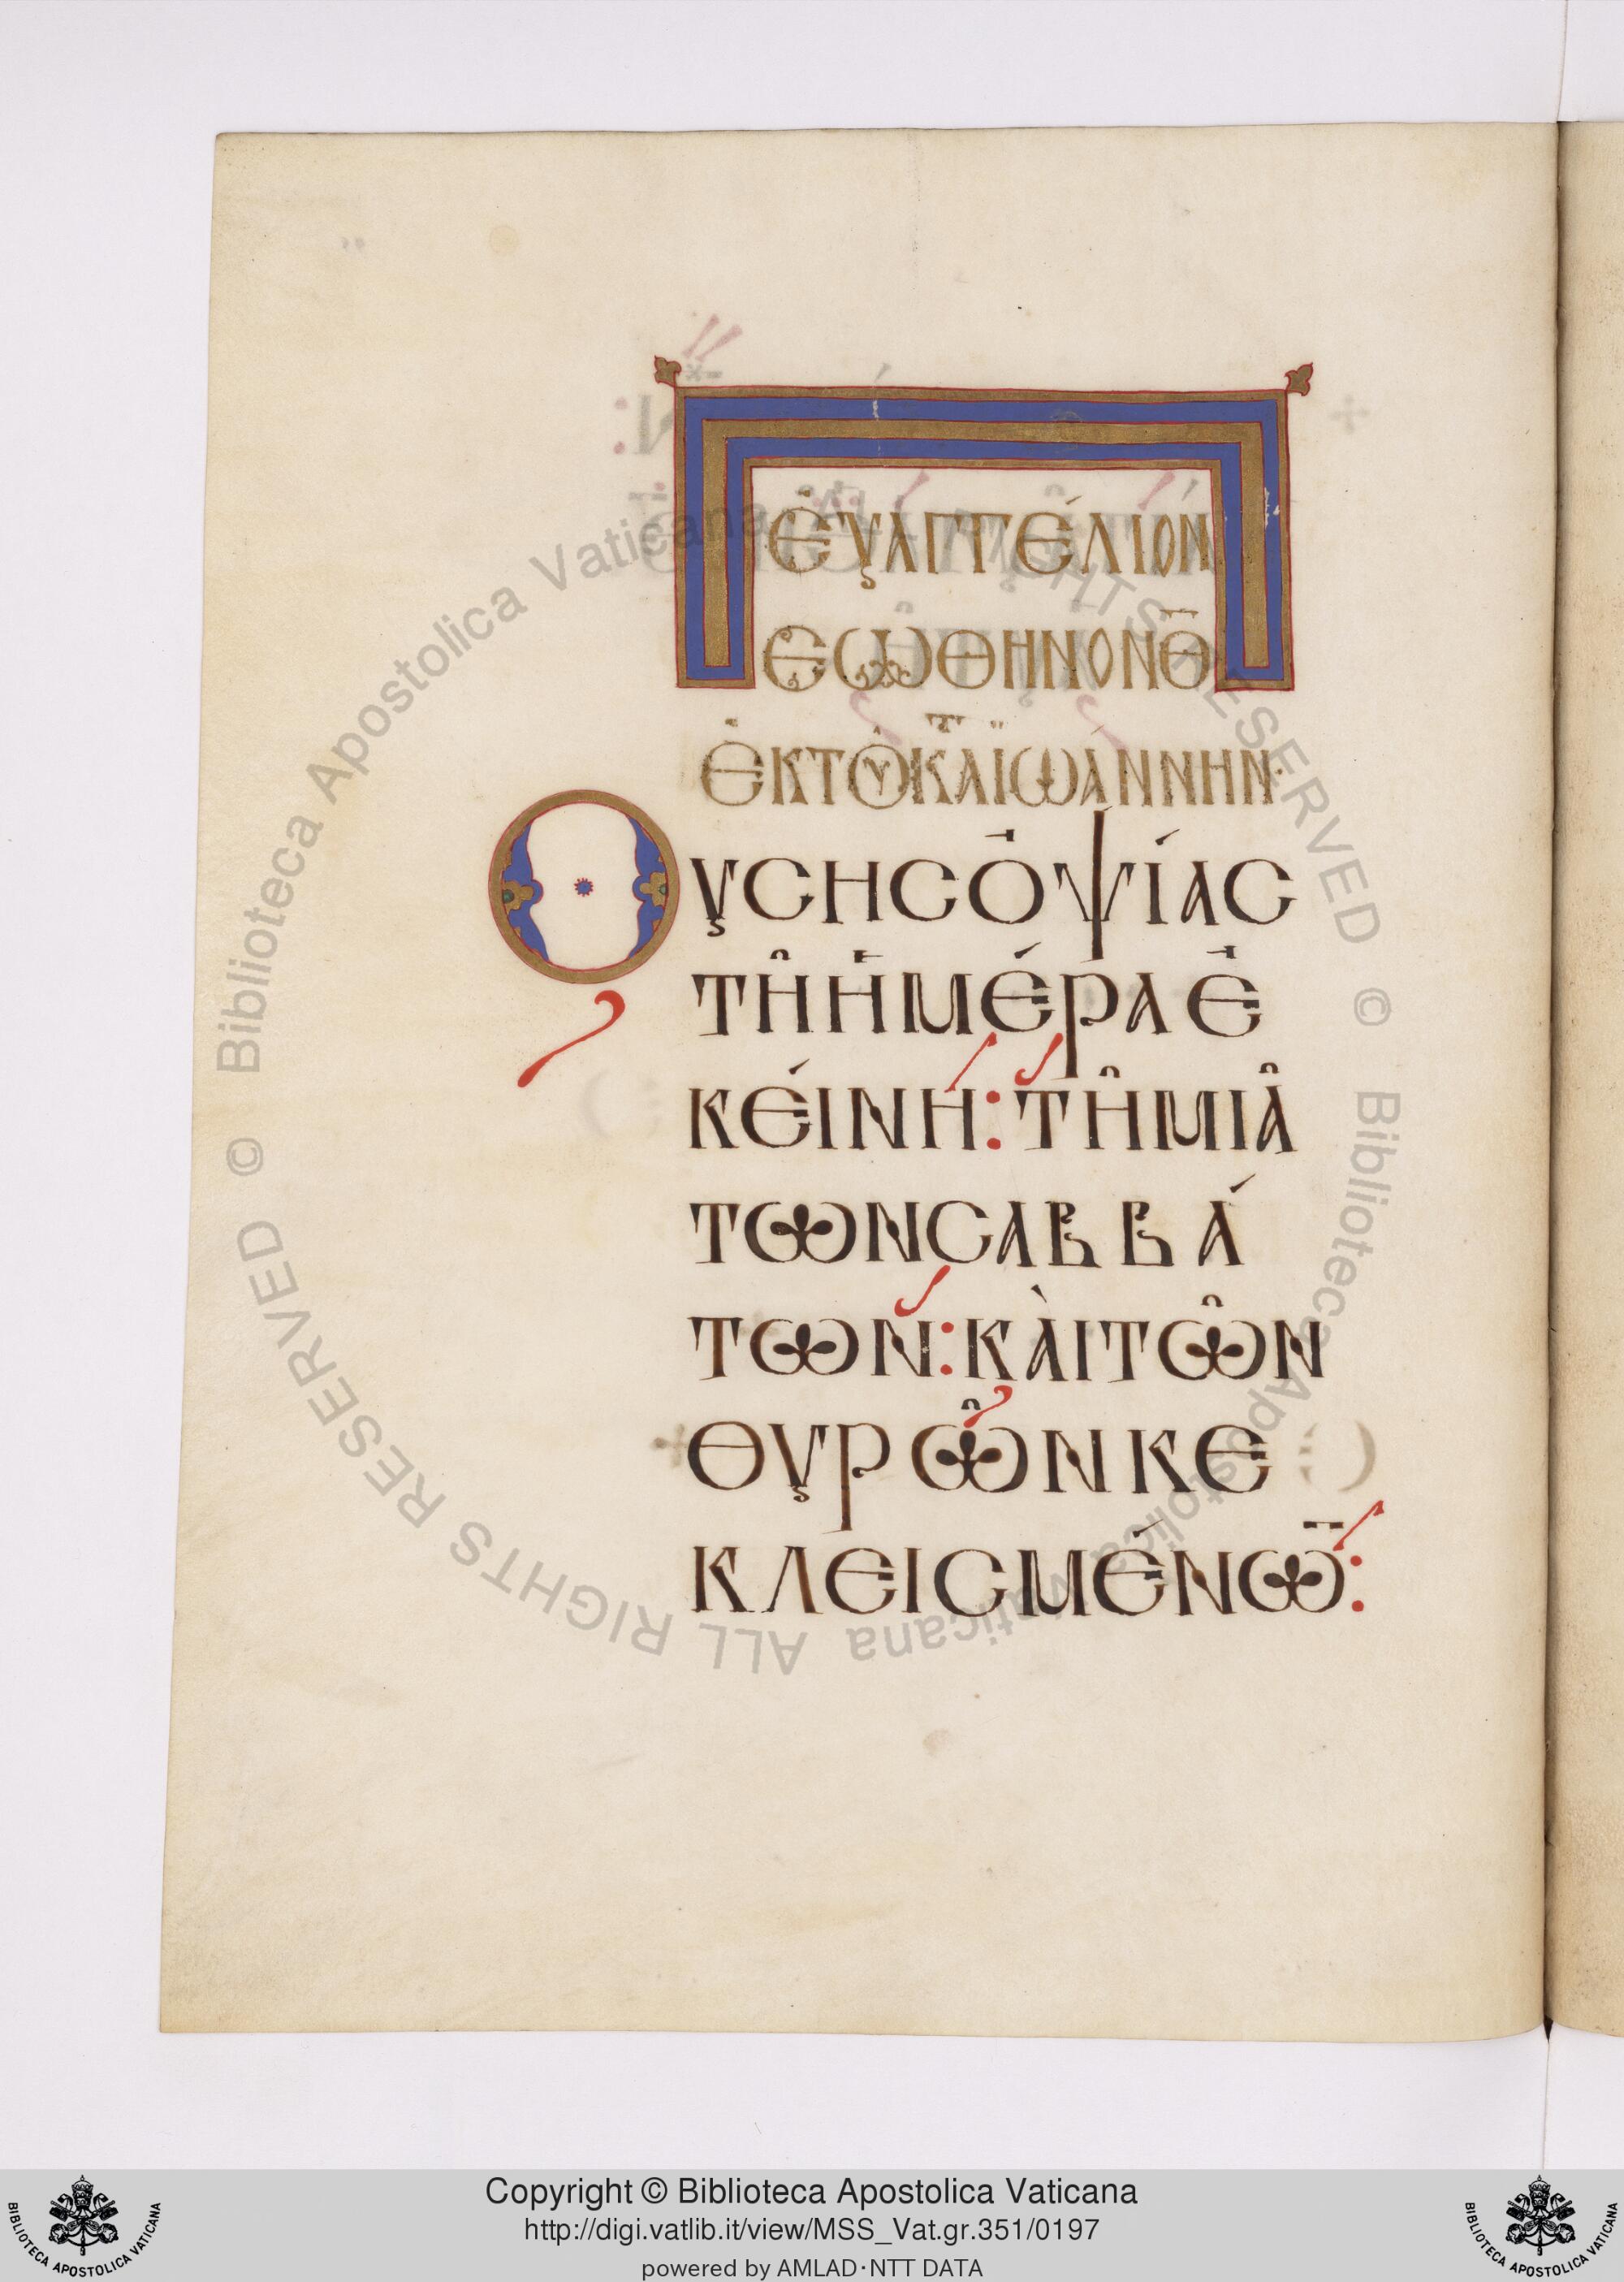 ἐυαγγέλιον
ἑωθηνον Θ̅
ἐκ τοῦ κ̅α̅ ϊωάννην·
Ουσης ὀψίας
τῆ ἡμέρα ἐ
κείνη: τῆ μιᾶ
των σαββά
των: κὰι τῶν
θυρῶν κε
κλεισμένω̅:
Biblioteca Apostolica Vaticana ALL RIGHTS RESERVED © Biblioteca Apostolica Vaticana ALL RIGHTS RESERVED ©
Copyright © Biblioteca Apostolica Vaticana
http://digi.vatlib.it/view/MSS_Vat.gr.351/0197
powered by AMLAD·NTT DATA
BIBLIOTECA APOSTOLICA VATICANA
BIBLIOTECA APOSTOLICA VATICANA